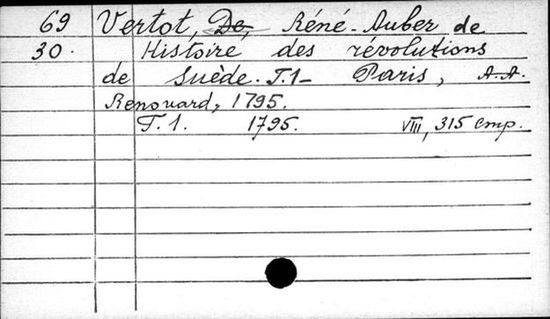 69 Vertot, De, Réné-Auber de
30. Histoire des révolutions
de Suède. T.1- Paris, A.A.
Renouard, 1795.
T.1. 1795. VIII, 315 стр.